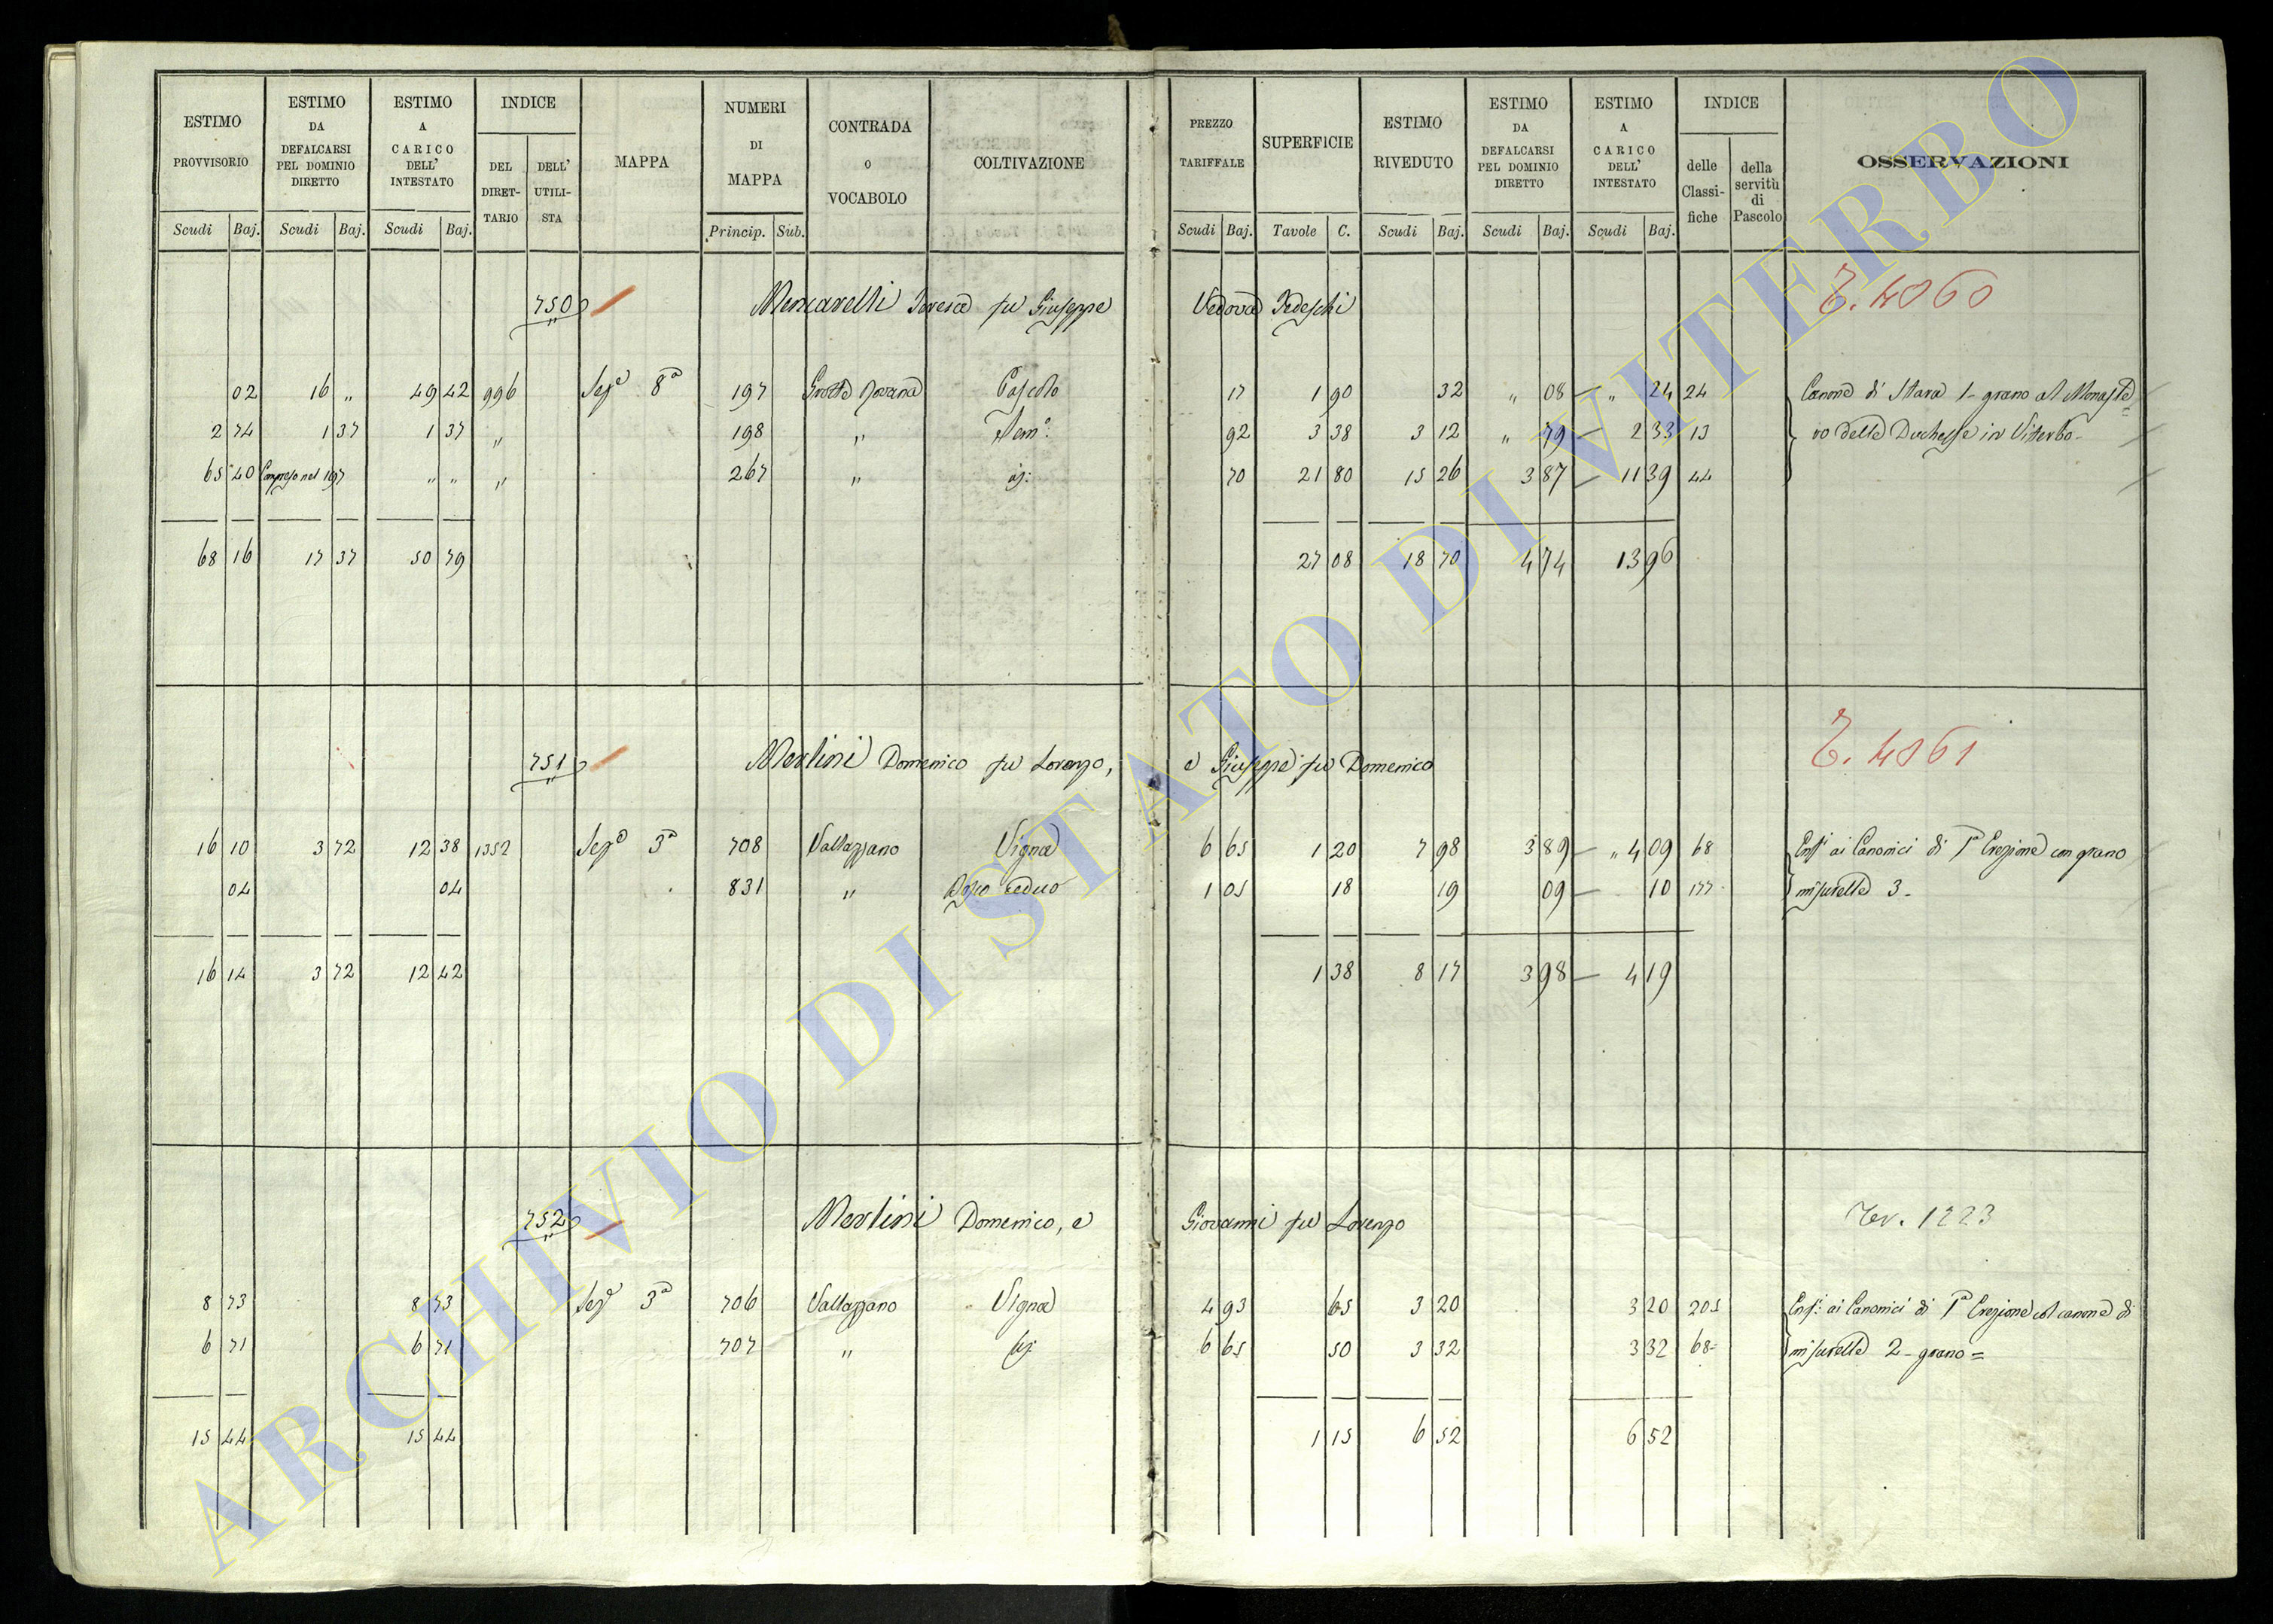 ESTIMO PROVVISORIO Scudi Baj. ESTIMO DA DEFALCARSI PEL DOMINIO DIRETTO Scudi Baj. ESTIMO A CARICO DELL' INTESTATO Scudi Baj. INDICE DEL DIRETTARIO DELL' UTILISTA MAPPA NUMERI DI MAPPA Princip. Sub. CONTRADA o VOCABOLO COLTIVAZIONE
PREZZO TARIFFALE Scudi Baj. SUPERFICIE Tavole C. ESTIMO RIVEDUTO Scudi Baj. ESTIMO DA DEFALCARSI PEL DOMINIO DIRETTO Scudi Baj. ESTIMO A CARICO DELL' INTESTATO Scudi Baj. INDICE delle Classifiche della servitù di Pascolo OSSERVAZIONI
750 Mencarelli Teresa fu Giuseppe Vedova Tedeschi T. 4060
02 16 " 49 42 996 Sez.e 8a 197 Grotta Pascolo 17 1 90 32 " 08 — " 24 24 Canone di Stara 1- grano al Monaste=
2 74 1 37 1 37 " 198 " Sem.o 92 3 38 3 12 " 79 — 2 33 13 ro della Duchessa in Viterbo -
65 40 Compreso nel 197 " " " 267 " id: 70 21 80 15 26 3 87 — 11 39 44
68 16 17 37 50 79 27 08 18 70 4 74 13 96
751 Merlini Domenico fu Lorenzo, e Giuseppe fu Domenico T. 4061
16 10 3 72 12 38 1352 Sez.e 3a 708 Vallazzano Vigna 6 65 1 20 7 98 3 89 — " 4 09 68 Enf.i ai Canonici di Ia Erezione con grano
04 04 831 " ceduo 1 05 18 19 09 — 10 177 misurelle 3 -
16 14 3 72 12 42 1 38 8 17 3 98 — 4 19
752 Merlini Domenico, e Giovanni fu Lorenzo Rev. 1223
8 73 8 73 Sez.e 3a 706 Vallazzano Vigna 4 93 65 3 20 3 20 205 Enf.i ai Canonici di Ia Erezione col canone di
6 71 6 71 707 " id: 6 65 50 3 32 3 32 68 misurelle 2 - grano =
15 44 15 44 1 15 6 52 6 52
ARCHIVIO DI STATO DI VITERBO